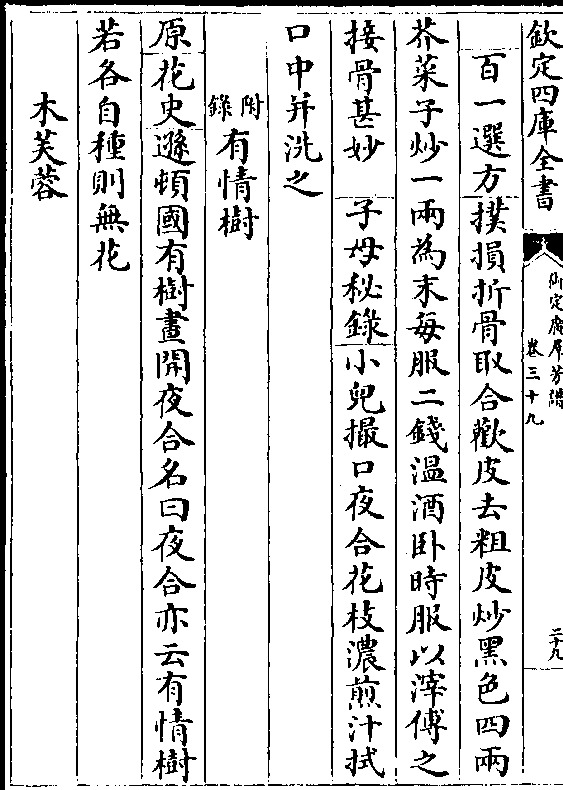 欽定四庫全書
御定廣群芳譜
卷三十九
二十九
百一選方撲損折骨取合歡皮去粗皮炒黑色四兩
芥菜子炒一兩為末每服二錢溫酒卧時服以滓傅之
接骨甚妙 子母秘錄小兒撮口夜合花枝濃煎汁拭
口中并洗之
附錄有情樹
原花史遜頓國有樹晝開夜合名曰夜合亦云有情樹
若各自種則無花
木芙蓉